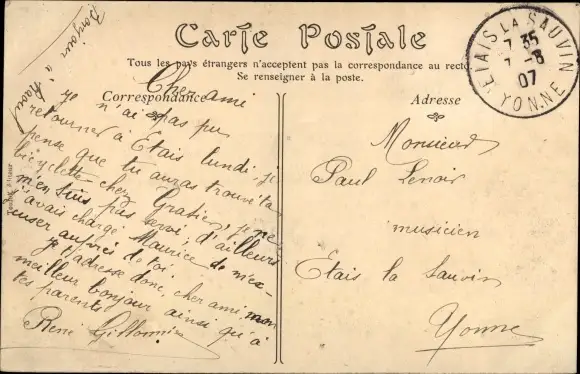 Bonjour à Raoul
Carte Postale
Tous les pays étrangers n'acceptent pas la correspondance au recto.
Se renseigner à la poste.
Correspondance
Adresse
ETAIS LA SAUVIN
7 35
7 -8
07
YONNE
Cher ami
je n'ai pas pu
retourner à Etais lundi. je
pense que tu auras trouvé ta
bicyclette chez Gratien, je ne
m'en suis pas servi, d'ailleurs
j'avais chargé Maurice de m'ex-
cuser auprès de toi.
je t'adresse donc, cher ami, mon
meilleur bonjour ainsi qu'à
tes parents
René
Monsieur
Paul Lenoir
musicien
Etais la Sauvin
Yonne